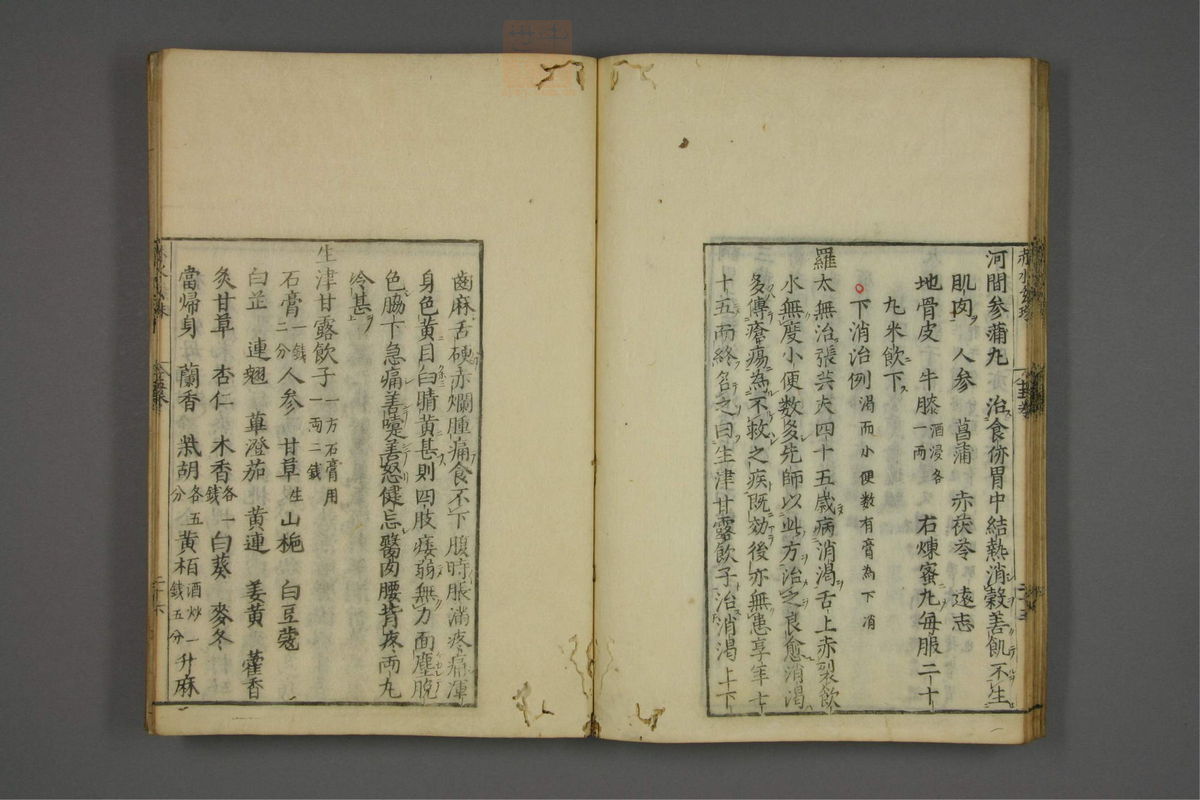 河間參蒲丸 治食㑊胃中結熱消穀善飢不生
肌肉 人參 菖蒲 赤茯苓 遠志
地骨皮 牛膝酒浸各一兩 右煉蜜丸每服二十
丸米飲下
下消治例渴而小便数有膏為下消
羅太無治張芸夫四十五歲病消渴舌上赤裂飲
水無度小便数多先師以此方治之良愈消渴
多傳瘡瘍為不救之疾既効後亦無患享年七
十五而終名之曰生津甘露飲子治消渴上下
齒麻舌硬赤爛腫痛食不下腹時脹滿疼痛渾
身色黃目白睛黃甚則四肢痿弱無力面塵脫
色脇下急痛善嚏善怒健忘臀肉腰背疼兩丸
冷甚
生津甘露飲子一方石膏用一兩二錢
石膏一錢二分人參 甘草生山梔 白豆蔻
白芷 連翹 蓽澄茄 黃連 姜黃 藿香
炙甘草 杏仁 木香各一錢白葵 麥冬
當歸身 蘭香 柴胡各五分黃栢酒炒一錢五分升麻